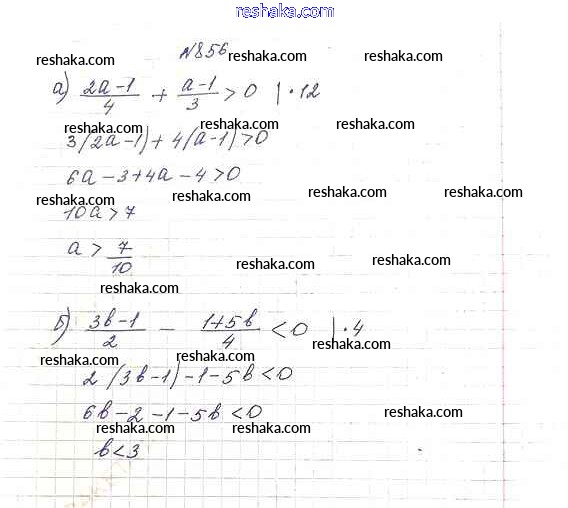 reshaka.com
№856
reshaka.com reshaka.com reshaka.com
а) (2a-1)/4 + (a-1)/3 > 0 | · 12
reshaka.com reshaka.com reshaka.com
3(2a-1)+4(a-1)>0
6a-3+4a-4>0
reshaka.com reshaka.com reshaka.com reshaka.com
10a>7
a > 7/10
reshaka.com reshaka.com
reshaka.com
б) (3b-1)/2 - (1+5b)/4 < 0 | · 4
reshaka.com reshaka.com reshaka.com
2(3b-1)-1-5b<0
6b-2-1-5b<0
reshaka.com
reshaka.com reshaka.com
b<3